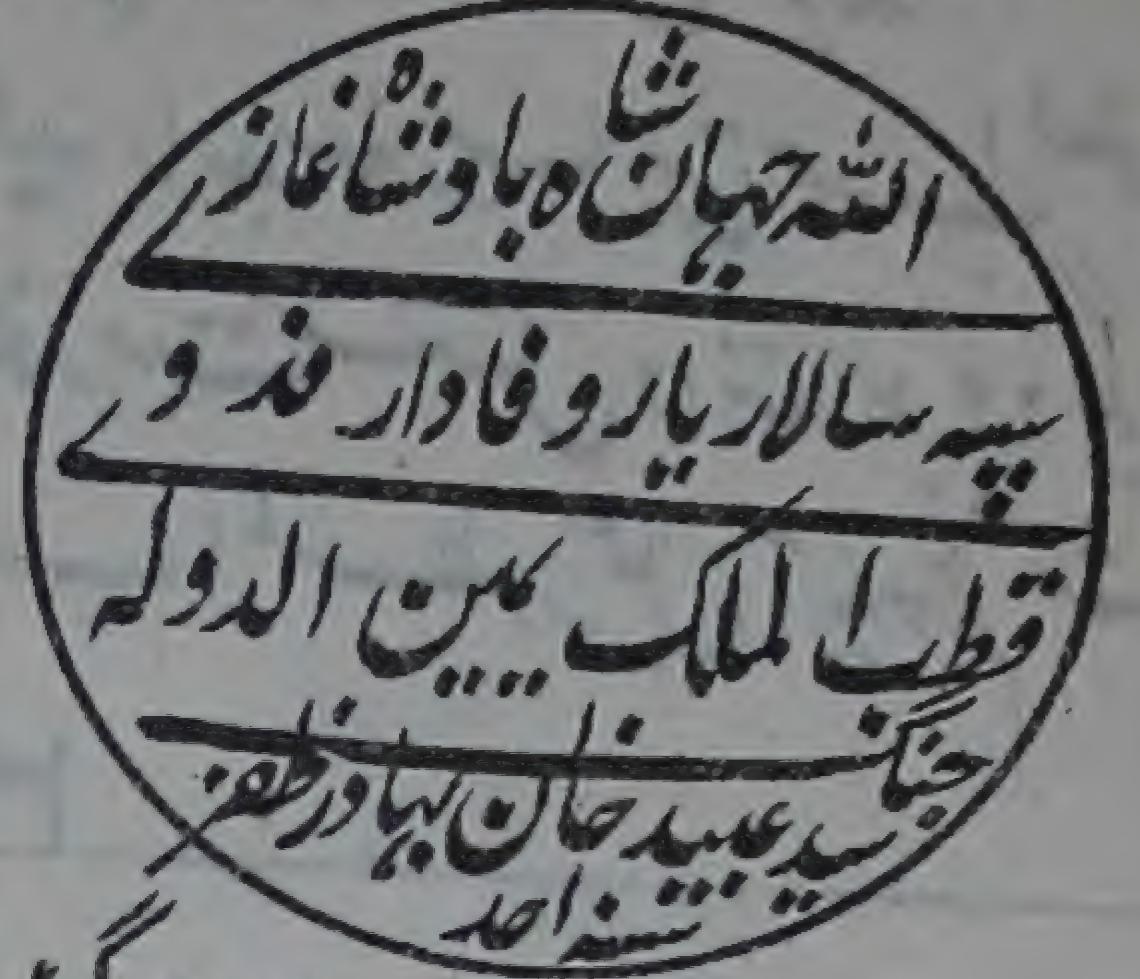 شا
اللہ جہان ہ بادشاہ غازے
سپہ سالار یار وفادار فدوے
قطب الملک یمین الدولہ
سید عبید خان بہادر ظفر جنگ
سنہ احد